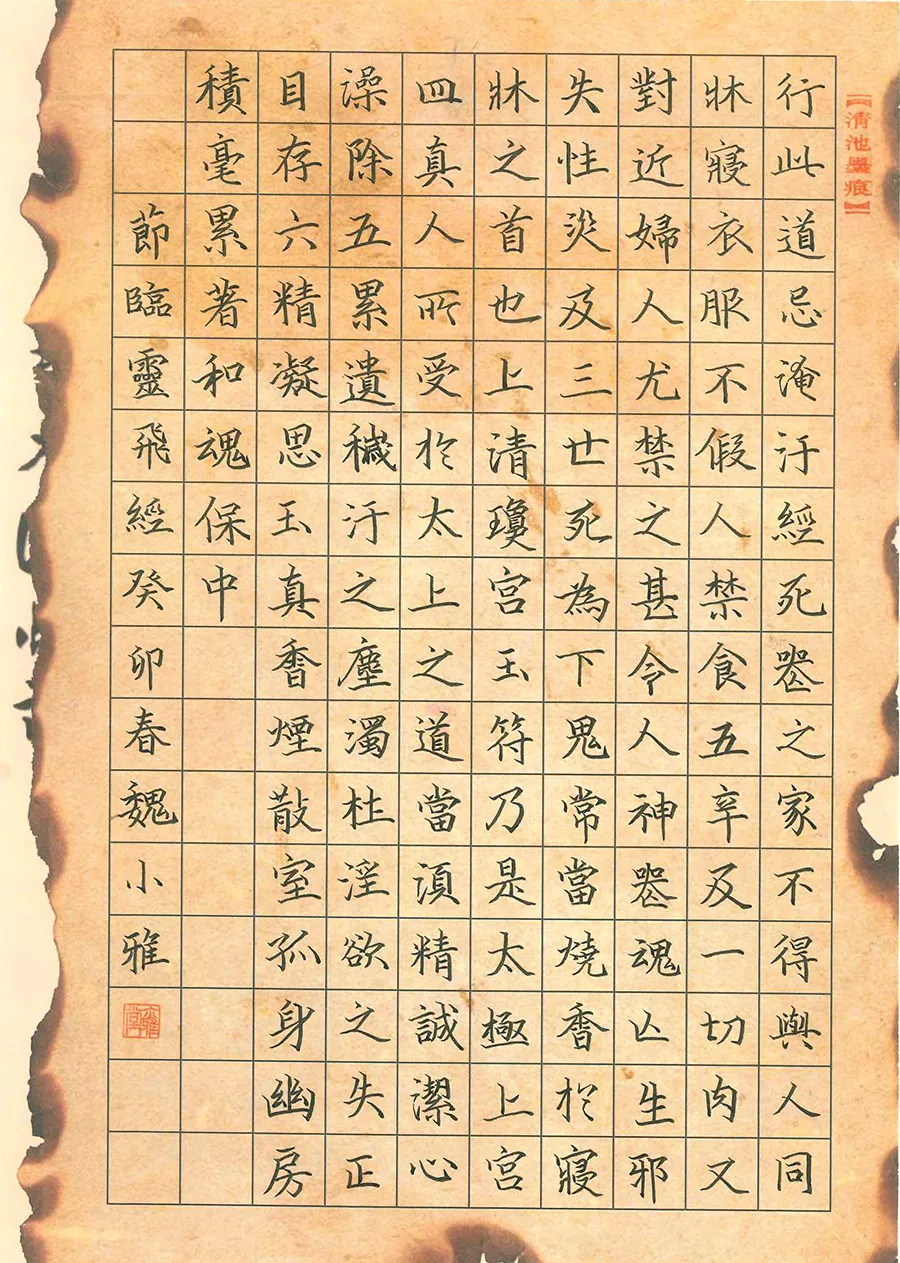 【清池墨痕】
行此道忌淹汙經死喪之家不得與人同
牀寢衣服不假人禁食五辛及一切肉又
對近婦人尤禁之甚令人神喪魂亡生邪
失性災及三世死為下鬼常當燒香於寢
牀之首也上清瓊宮玉符乃是太極上宮
四真人所受於太上之道當須精誠潔心
澡除五累遺穢汙之塵濁杜淫欲之失正
目存六精凝思玉真香煙散室孤身幽房
積毫累著和魂保中
節臨靈飛經癸卯春魏小雅